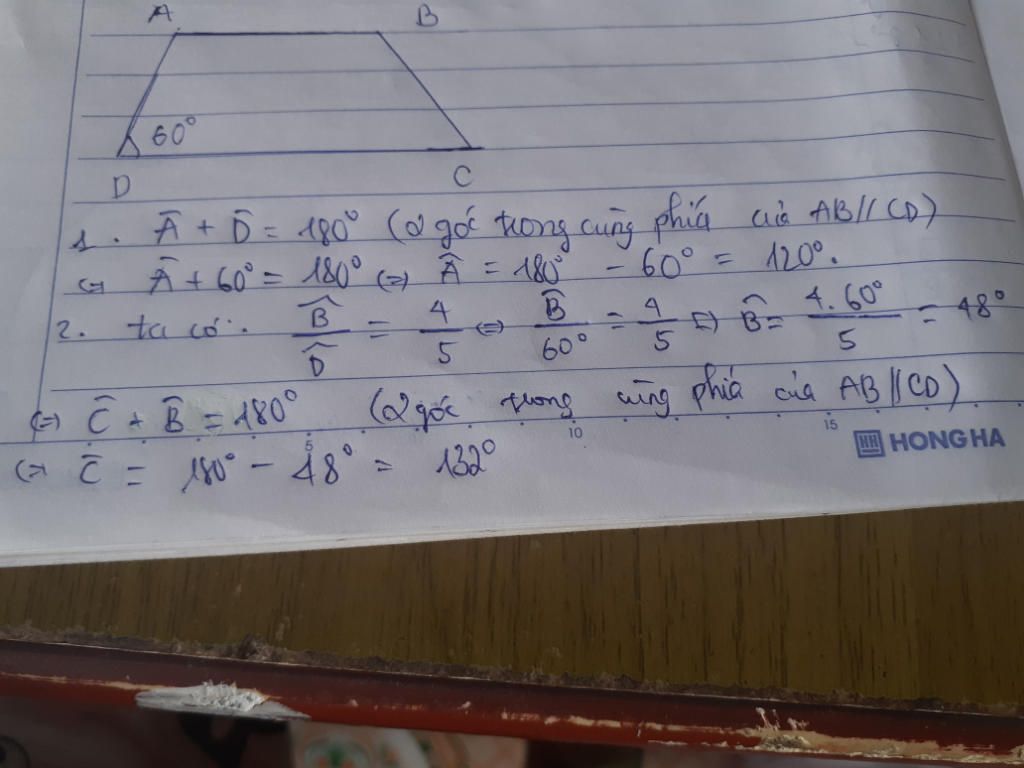 A B
60°
D C
1. Â + D̂ = 180° (2 góc trong cùng phía của AB // CD)
⇔ Â + 60° = 180° ⇔ Â = 180° - 60° = 120°.
2. ta có: B̂/D̂ = 4/5 ⇔ B̂/60° = 4/5 ⇔ B̂ = 4.60°/5 = 48°
⇔ Ĉ + B̂ = 180° (2 góc trong cùng phía của AB // CD)
5 10 15
HONG HA
⇔ Ĉ = 180° - 48° = 132°